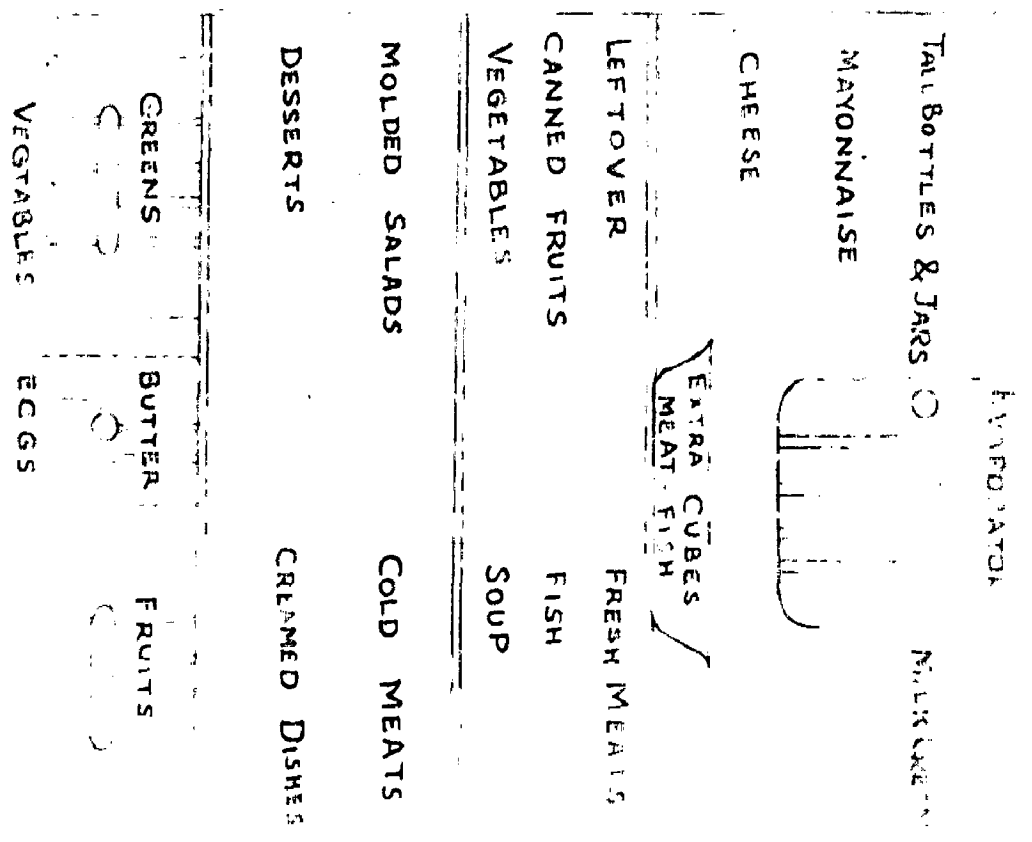 EVAPORATOR
TALL BOTTLES & JARS MILK CREAM
MAYONNAISE
CHEESE
EXTRA CUBES
MEAT - FISH
LEFTOVER FRESH MEATS
CANNED FRUITS FISH
VEGETABLES SOUP
MOLDED SALADS COLD MEATS
DESSERTS CREAMED DISHES
GREENS BUTTER FRUITS
VEGTABLES EGGS